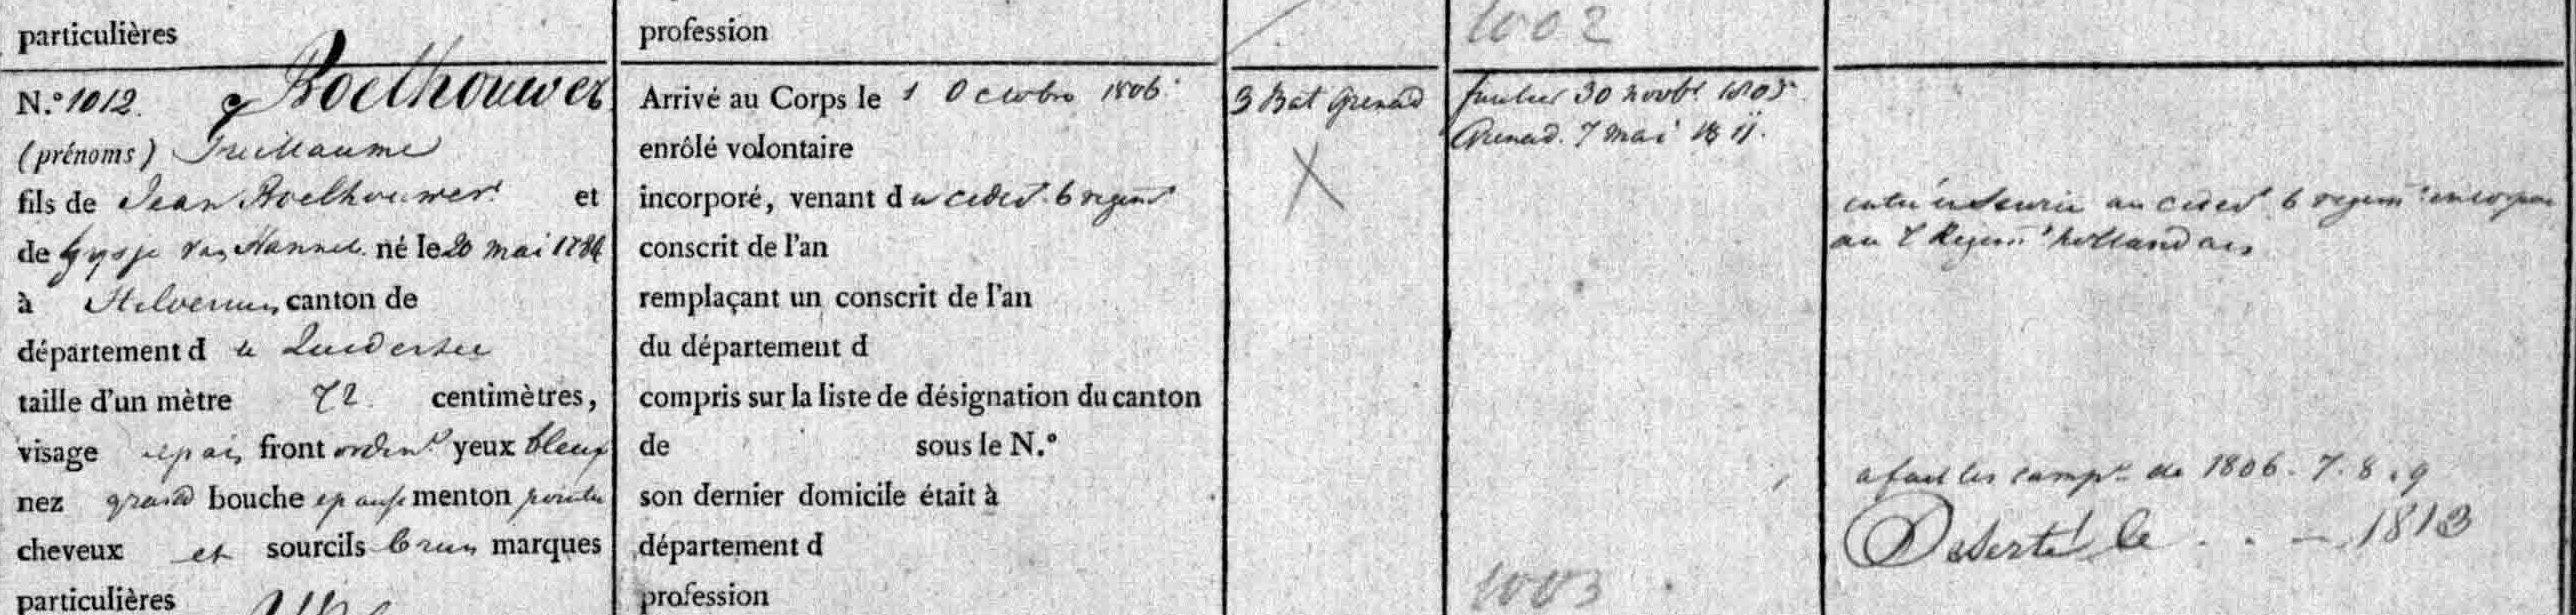 particulières
profession
1002
N.º 1012. Boelhouwer
(prénoms) Guillaume
fils de Jean Boelhouwer et
de Gysje van Hammel né le 20 mai 1784
à Hilversum canton de
département d u Zuiderzee
taille d'un mètre 72 centimètres,
visage epais front ordinre yeux bleux
nez grand bouche epaisse menton pointu
cheveux et sourcils brun marques
particulières
Arrivé au Corps le 1 Octobre 1806.
enrôlé volontaire
incorporé, venant d u cidevt 6 regimt
conscrit de l'an
remplaçant un conscrit de l'an
du département d
compris sur la liste de désignation du canton
de sous le N.º
son dernier domicile était à
département d
profession
3 Bat Grenad
X
fusilier 30 novbr
Grenad. 7 mai 1811.
1003
entré en Service au cidevt 6 regimt incorporé
au Regimt hollandais
a fait les campes de 1806. 7. 8. 9
Deserté le . . – 1813